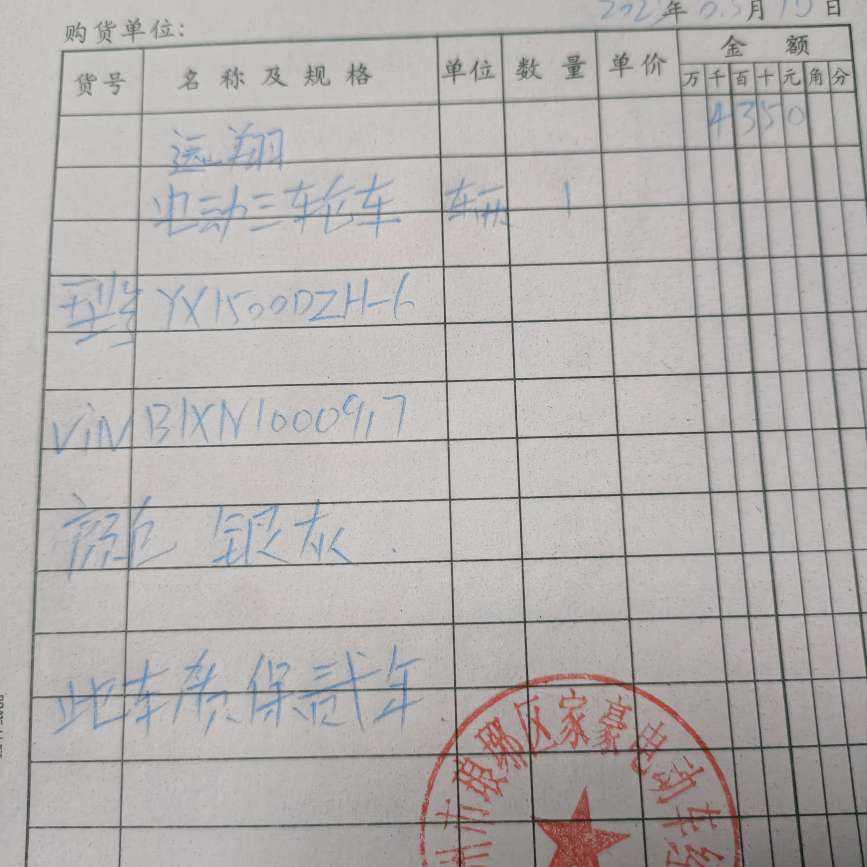 年 月 日
购货单位:
货号 名称及规格 单位 数量 单价 金额
万 千 百 十 元 角 分
远翔 4350
电动三轮车 车辆 1
型号 YX1500DZH-6
ViN B1XN1000917
颜色 银灰.
此车质保贰年
州市琅琊区家豪电动车经